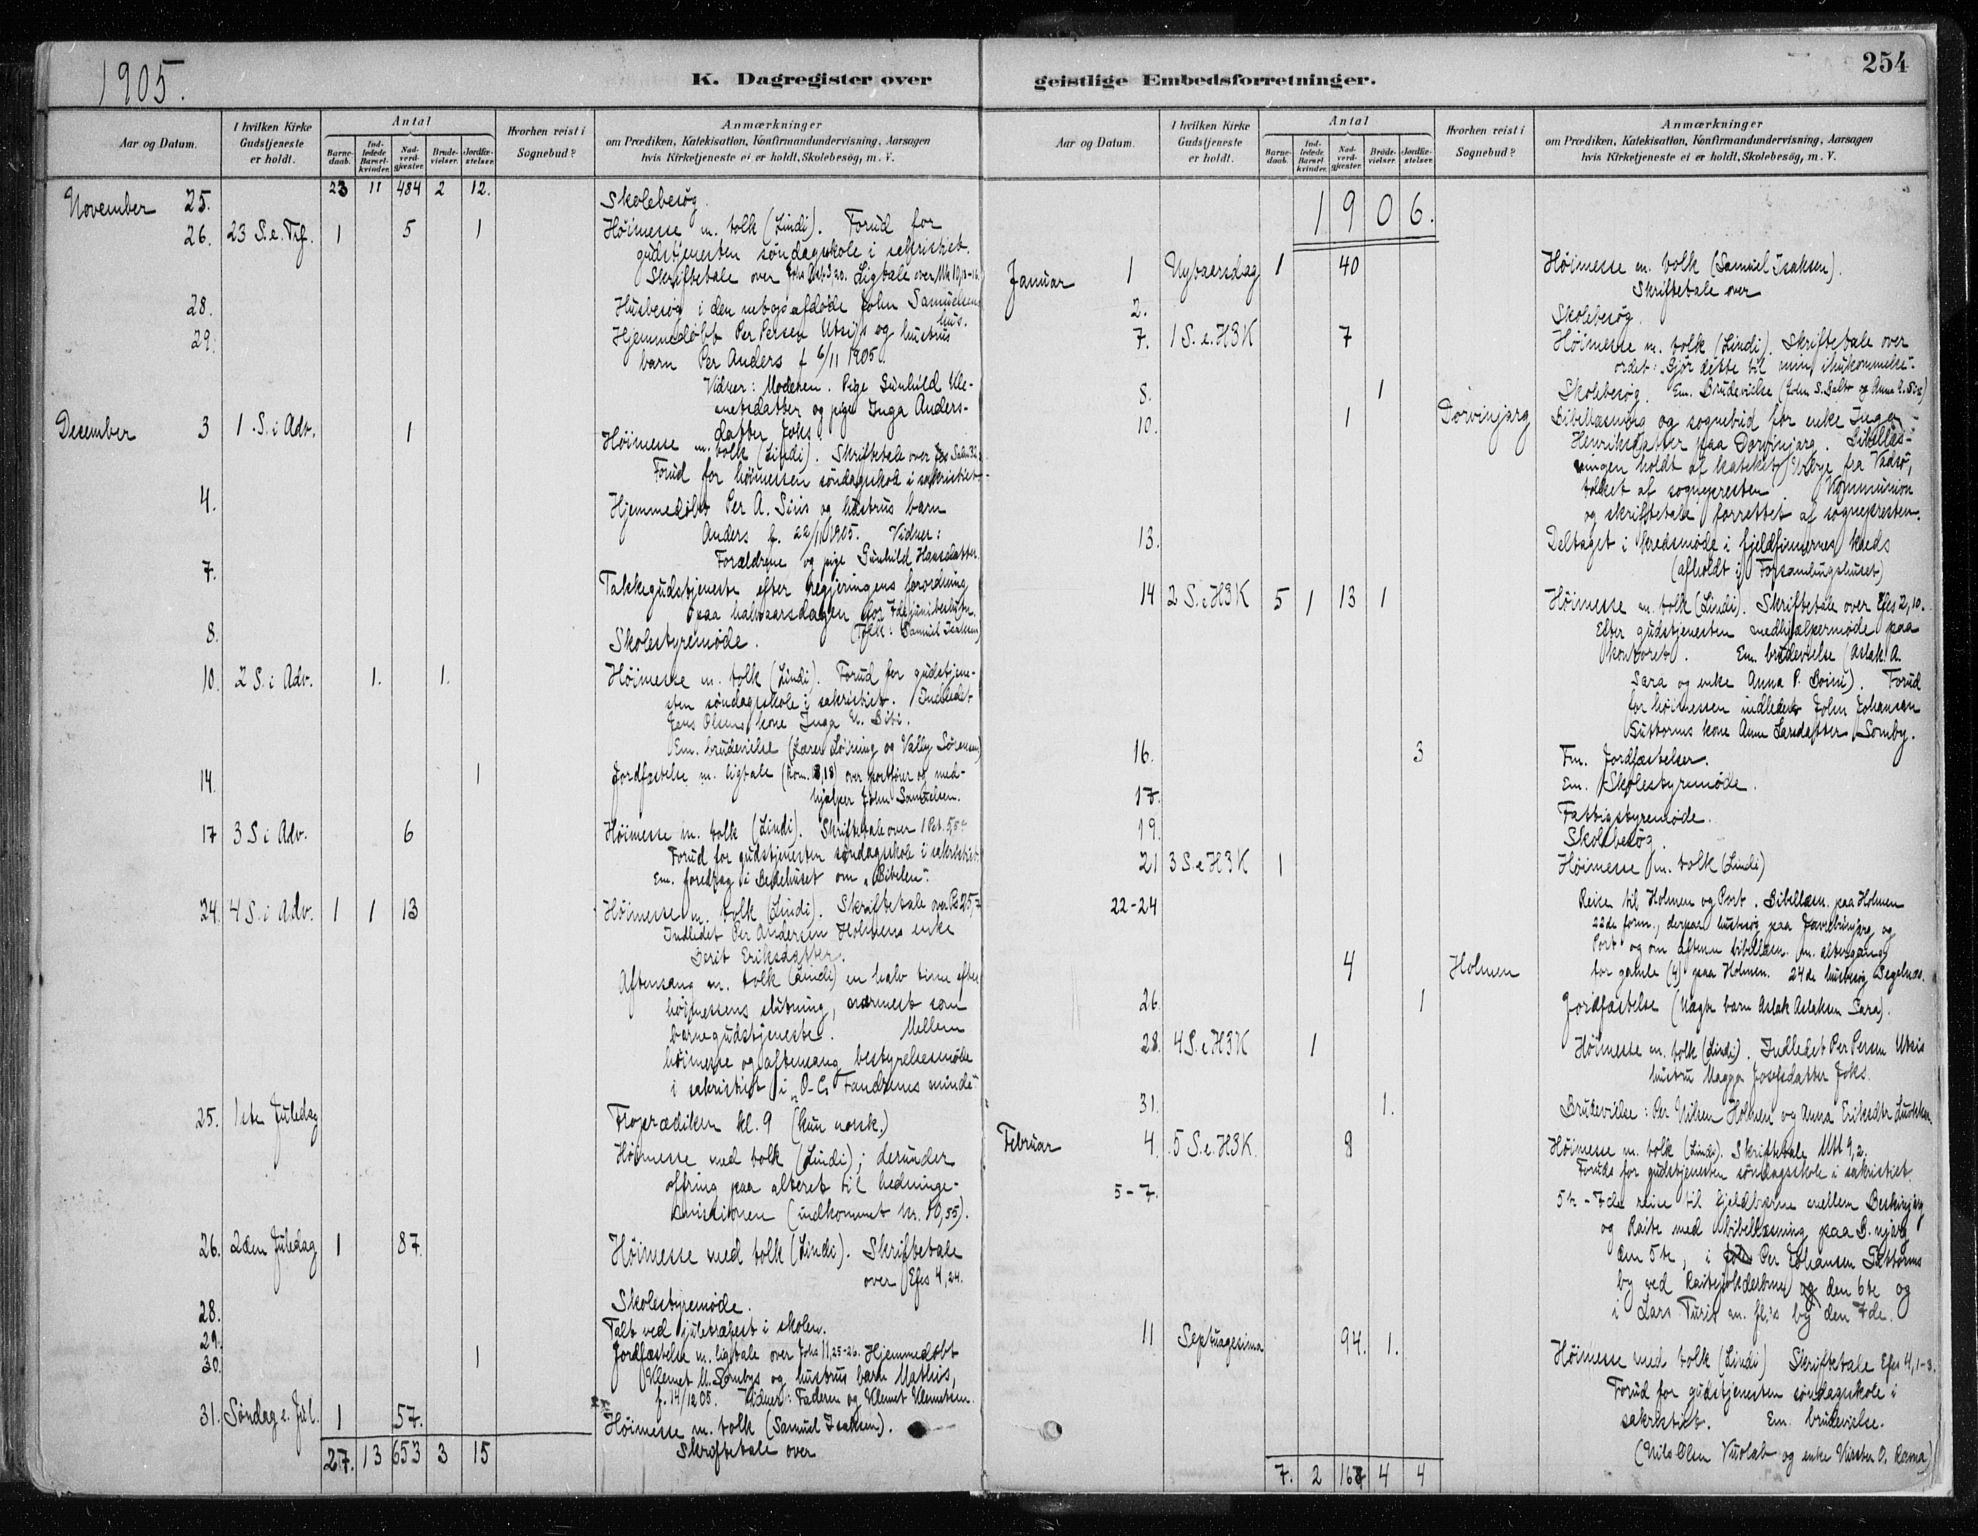 1905.
K. Dagregister over
Aar og Datum.
I hvilken Kirke Gudstjeneste er holdt.
Antal
Barnedaab.
Indledede Barselkvinder.
Nadverdgjester.
Brudevielser.
Jordfæstelser.
Hvorhen reist i Sognebud?
Anmærkninger
om Prædiken, Katekisation, Konfirmandundervisning, Aarsagen
hvis Kirketjeneste ei er holdt, Skolebesøg, m. V.
23 11 484 2 12.
November 25. Skolebesøg.
26. 23 S.e. Trf. 1 5 1 Høimesse m. tolk (Lindi). Forud for
gudstjenesten søndagsskole i sakristiet.
Skriftetale over Joh. Aab. 3,20. Ligtale over
28. Husbesøg i den netop afdøde John Samuelsens
hus.
29. Hjemmedøbt Per Persen Utsis og hustrus
barn Per Anders f. 6/11 1905
Vidner: Moderen. Pige Gunhild Kle-
metsdatter og pige Inga Anders-
datter Joks.
December 3 1 S. i Adv. 1 Høimesse m. tolk (Lindi). Skriftetale over Salm 32
Forud for høimessen søndagsskol i sakristiet
4. Hjemmedøbt Per A. Siris og hustrus barn
Anders f. 22/11 1905. Vidner:
Forældrene og pige Gunhild Hansdatter.
7. Takkegudstjeneste efter regjeringens forordning
paa halvaarsdagen for 7de junibeslutn.
(Tolk: Samuel Isaksen)
8. Skolestyremøde.
10. 2 S. i Adv. 1. 1. Høimesse m. tolk (Lindi). Forud for gudstjene-
sten søndagsskole i sakristiet. Indledet
Jens Olsens kone Inga N. Biti.
Em. brudevielse (Lærer Løining og Valby Sørensen)
14. 1 Jordfæstelse m. ligtale (Rom. 8,18) over postfører og med-
hjælper John Samuelsen.
17 3 S i Adv. 6 Høimesse m. tolk (Lindi). Skriftetale over 1 Pet. 5,5
Forud for gudstjenesten søndagsskole i sakristiet.
Em. foredrag i Bedehuset om „Bibelen".
24. 4 S. i Adv. 1 1 13 Høimesse m. tolk (Lindi). Skriftetale over Ps 25,7
Indledet Per Andersen Holmens enke
Berit Eriksdatter.
Aftensang m. tolk (Lindi) en halv time efter
høimessens slutning, nærmest som
barnegudstjeneste. Mellem
høimesse og aftensang bestyrelsesmøde
i sakristiet i „O. C. Fandrems minde"
25. 1ste Juledag Froprædiken kl. 9 (kun norsk.)
Høimesse med tolk (Lindi); derunder
ofring paa alteret til hedninge-
missionen (indkommet kr. 10,55).
26. 2den Juledag 1 87. Høimesse med tolk (Lindi). Skriftetale
over Efes 4,24.
28. Skolestyremøde.
29. Talt ved juletræfest i skolen.
30. 1 Jordfæstelse m. ligtale over Joh 11,25-26. Hjemmedøbt
Klemet M. Sombys og hustrus barn Mathis,
f. 14/12 05. Vidner: Faderen og Klemet Klemetsen.
31. Søndag e. Jul. 1 57. Høimesse m. tolk (Samuel Isaksen).
Skriftetale over
27. 13 653 3 15
254
geistlige Embedsforretninger.
Aar og Datum.
I hvilken Kirke Gudstjeneste er holdt.
Antal
Barnedaab.
Indledede Barselkvinder.
Nadverdgjester.
Brudevielser.
Jordfæstelser.
Hvorhen reist i Sognebud?
Anmærkninger
om Prædiken, Katekisation, Konfirmandundervisning, Aarsagen
hvis Kirketjeneste ei er holdt, Skolebesøg, m. V.
1906.
Januar 1 Nytaarsdag 1 40 Høimesse m. tolk (Samuel Isaksen).
Skriftetale over
2. Skolebesøg.
7. 1 S. e. H3K 7 Høimesse m. tolk (Lindi). Skriftetale over
ordet: „Gjør dette til min ihukommelse".
8. 1 Skolebesøg. Em. Brudevielse (John S. Balto og Anna
10. 1 Dorvinjarg Bibellæsning og sognebud for enke Inger
Henriksdatter paa Dorvinjarg. Bibellæs-
ningen holdt af kateket fra Vadsø,
tolket af sognepresten. Kommunion
og skriftetale forrettet af sognepresten.
13. Deltaget i kredsmøde i fjeldfinnernes kreds
(afholdt i Forsamlingshuset)
14 2 S. e H3K 5 1 13 1 Høimesse m. tolk (Lindi). Skriftetale over Efes 2,10.
Efter gudstjenesten medhjælpermøde paa
kontoret. Em. brudevielse (Aslak A.
Sara og enke Anna P. Boini). Forud
for høimessen indledet John Johansen
Buttorms kone Anne Larsdatter Somby.
16. 3 Fm. Jordfæstelser.
Em. Skolestyremøde.
17. Fattigstyremøde.
19. Skolebesøg.
21 3 S. e H3K 1 Høimesse m. tolk (Lindi)
22-24 Reise til Holmen og Port. Bibellæsn. paa Holmen
22de form., derpaa husbesøg paa og
Port og om aftenen bibellæsn. m. altergang
4 Holmen for gamle (4) paa Holmen. 24de husbesøg
26. 1 Jordfæstelse (Nagte barn Aslak Aslaksen Sara).
28. 4 S. e H3K 1 Høimesse m. tolk (Lindi). Indledet Per Persen Utsis
hustru Magga Josefsdatter Joks.
31. 1. Brudevielse: Per Nilsen Holmen og Anna Eriksdtr
Februar 4. 5 S. e. H3K. 8 Høimesse m. tolk (Lindi). Skriftetale Mt 9,2.
Foruds for gudstjenesten søndagsskole i sakristiet
5-7. 5te - 7de reise til fjeldbyerne mellem
og Raite med bibellæsning paa B. njarg
den 5te, i Per Johansen Buttorms
by ved den 6te og
i Lars Turis m. fl.'s by den 7de.
11 Septuagesima 94. 1. Høimesse med tolk (Lindi) Skriftetale Efes 4,1-3.
Forud for gudstjenesten søndagsskole i
sakristiet. Em. brudevielse.
(Nils Olsen Vuolab og enke Kirsten O. Ravna)
7. 2 167 4 4